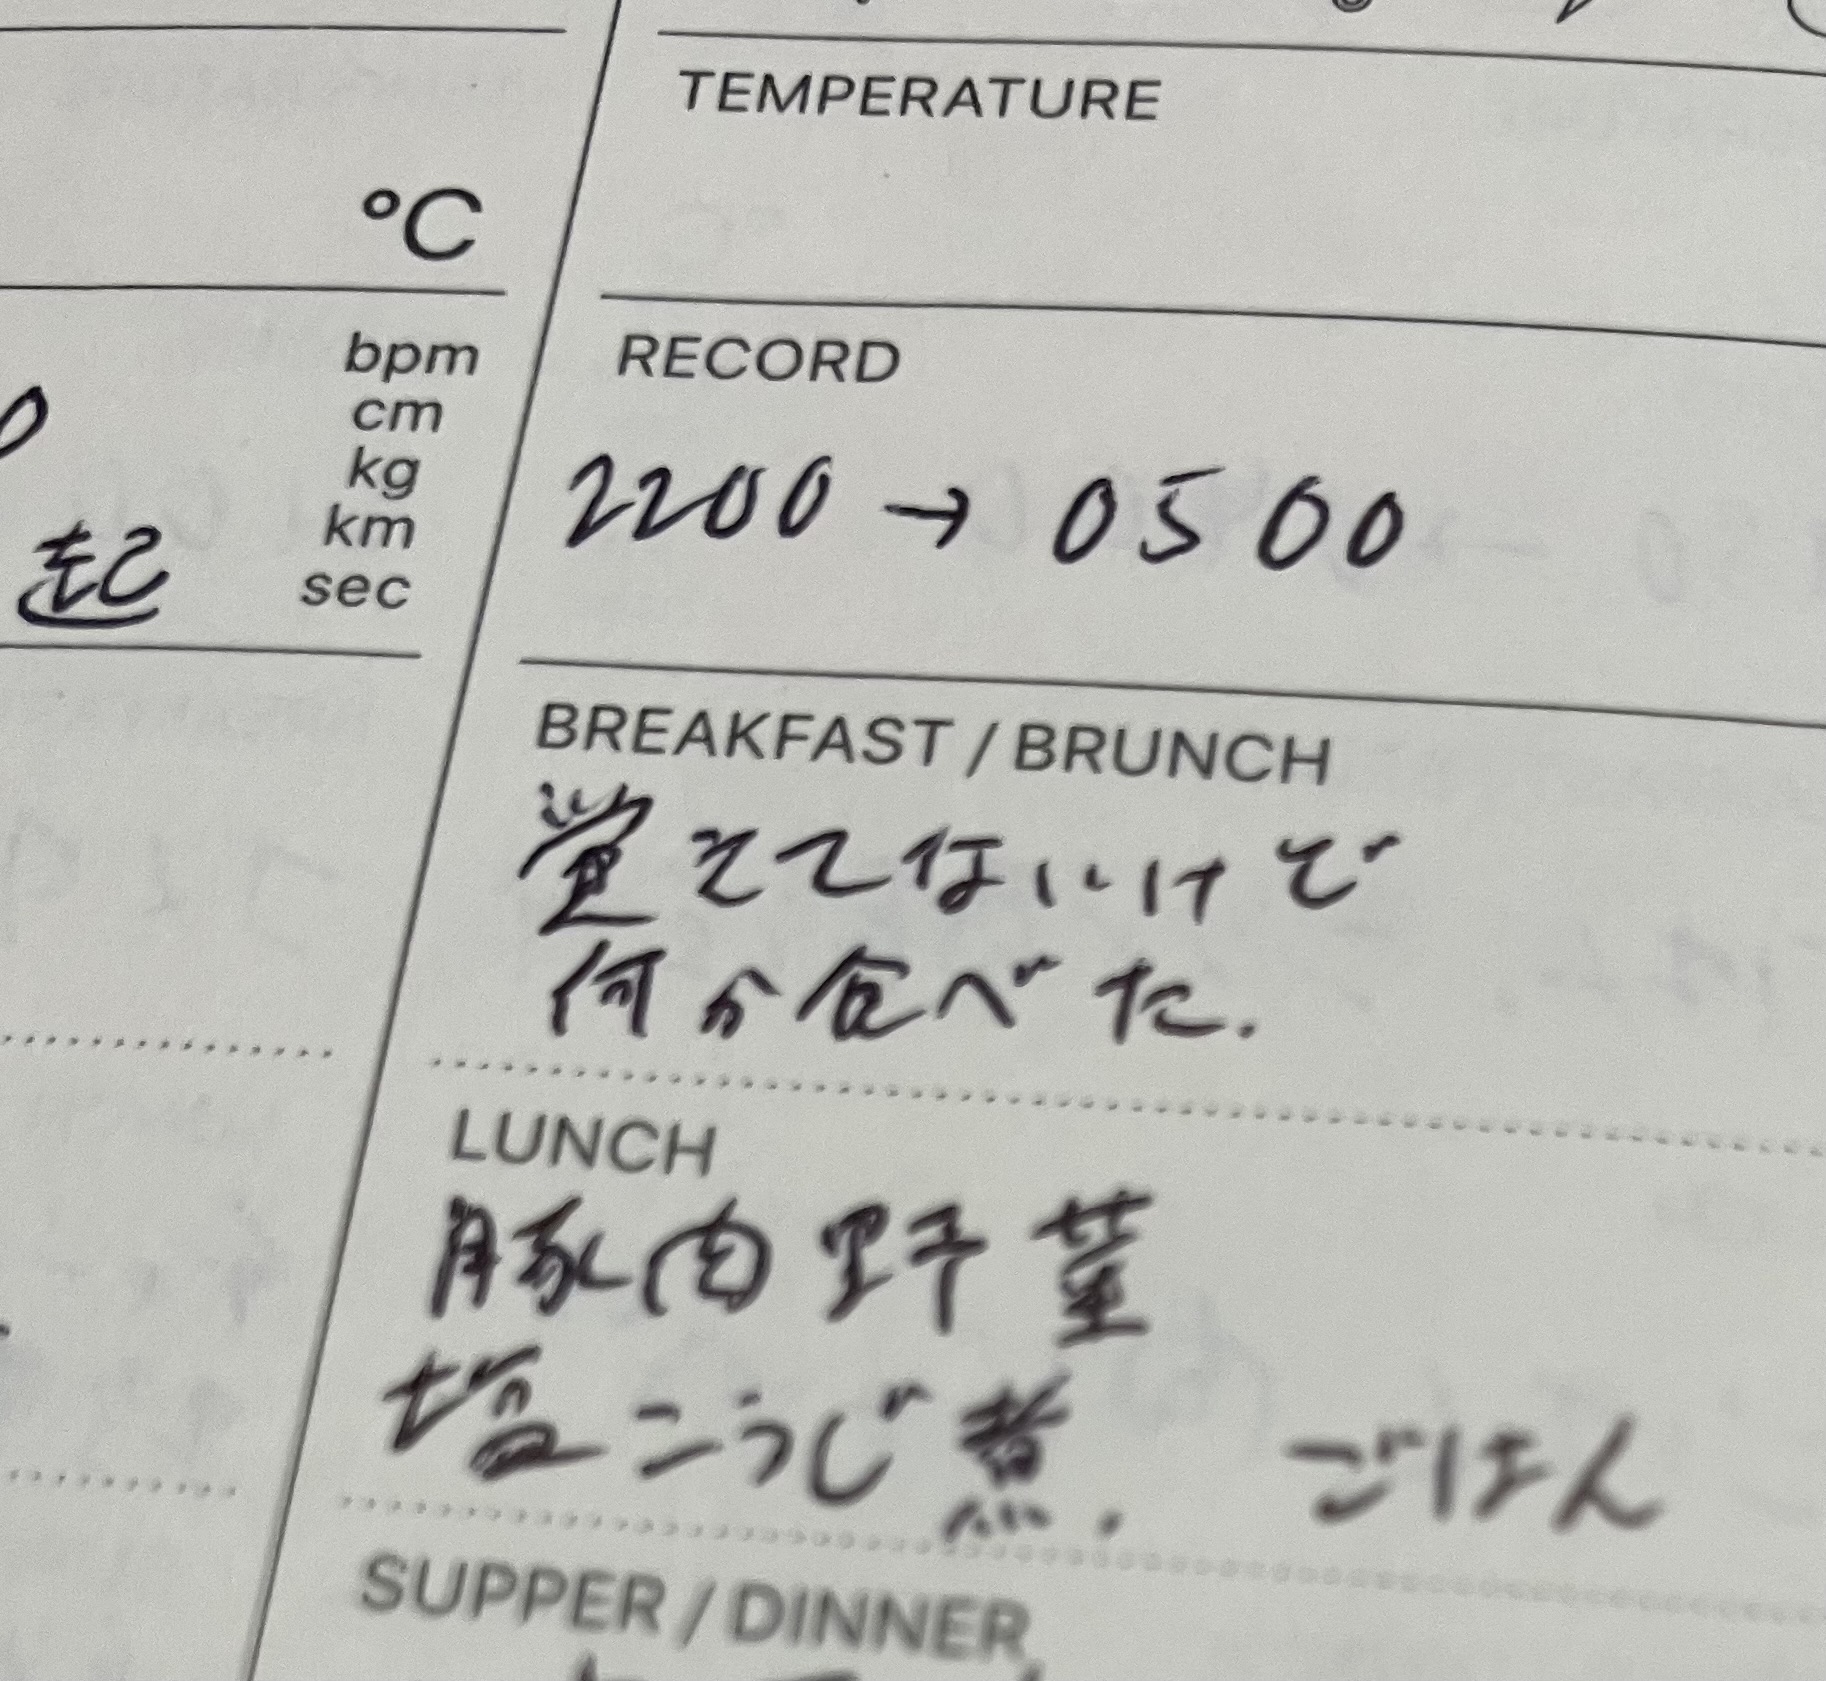 °C
bpm
cm
kg
km
sec
起
TEMPERATURE
RECORD
2200→0500
BREAKFAST / BRUNCH
覚えてないけど
何か食べた.
LUNCH
豚肉野菜
塩こうじ煮. ごはん
SUPPER / DINNER